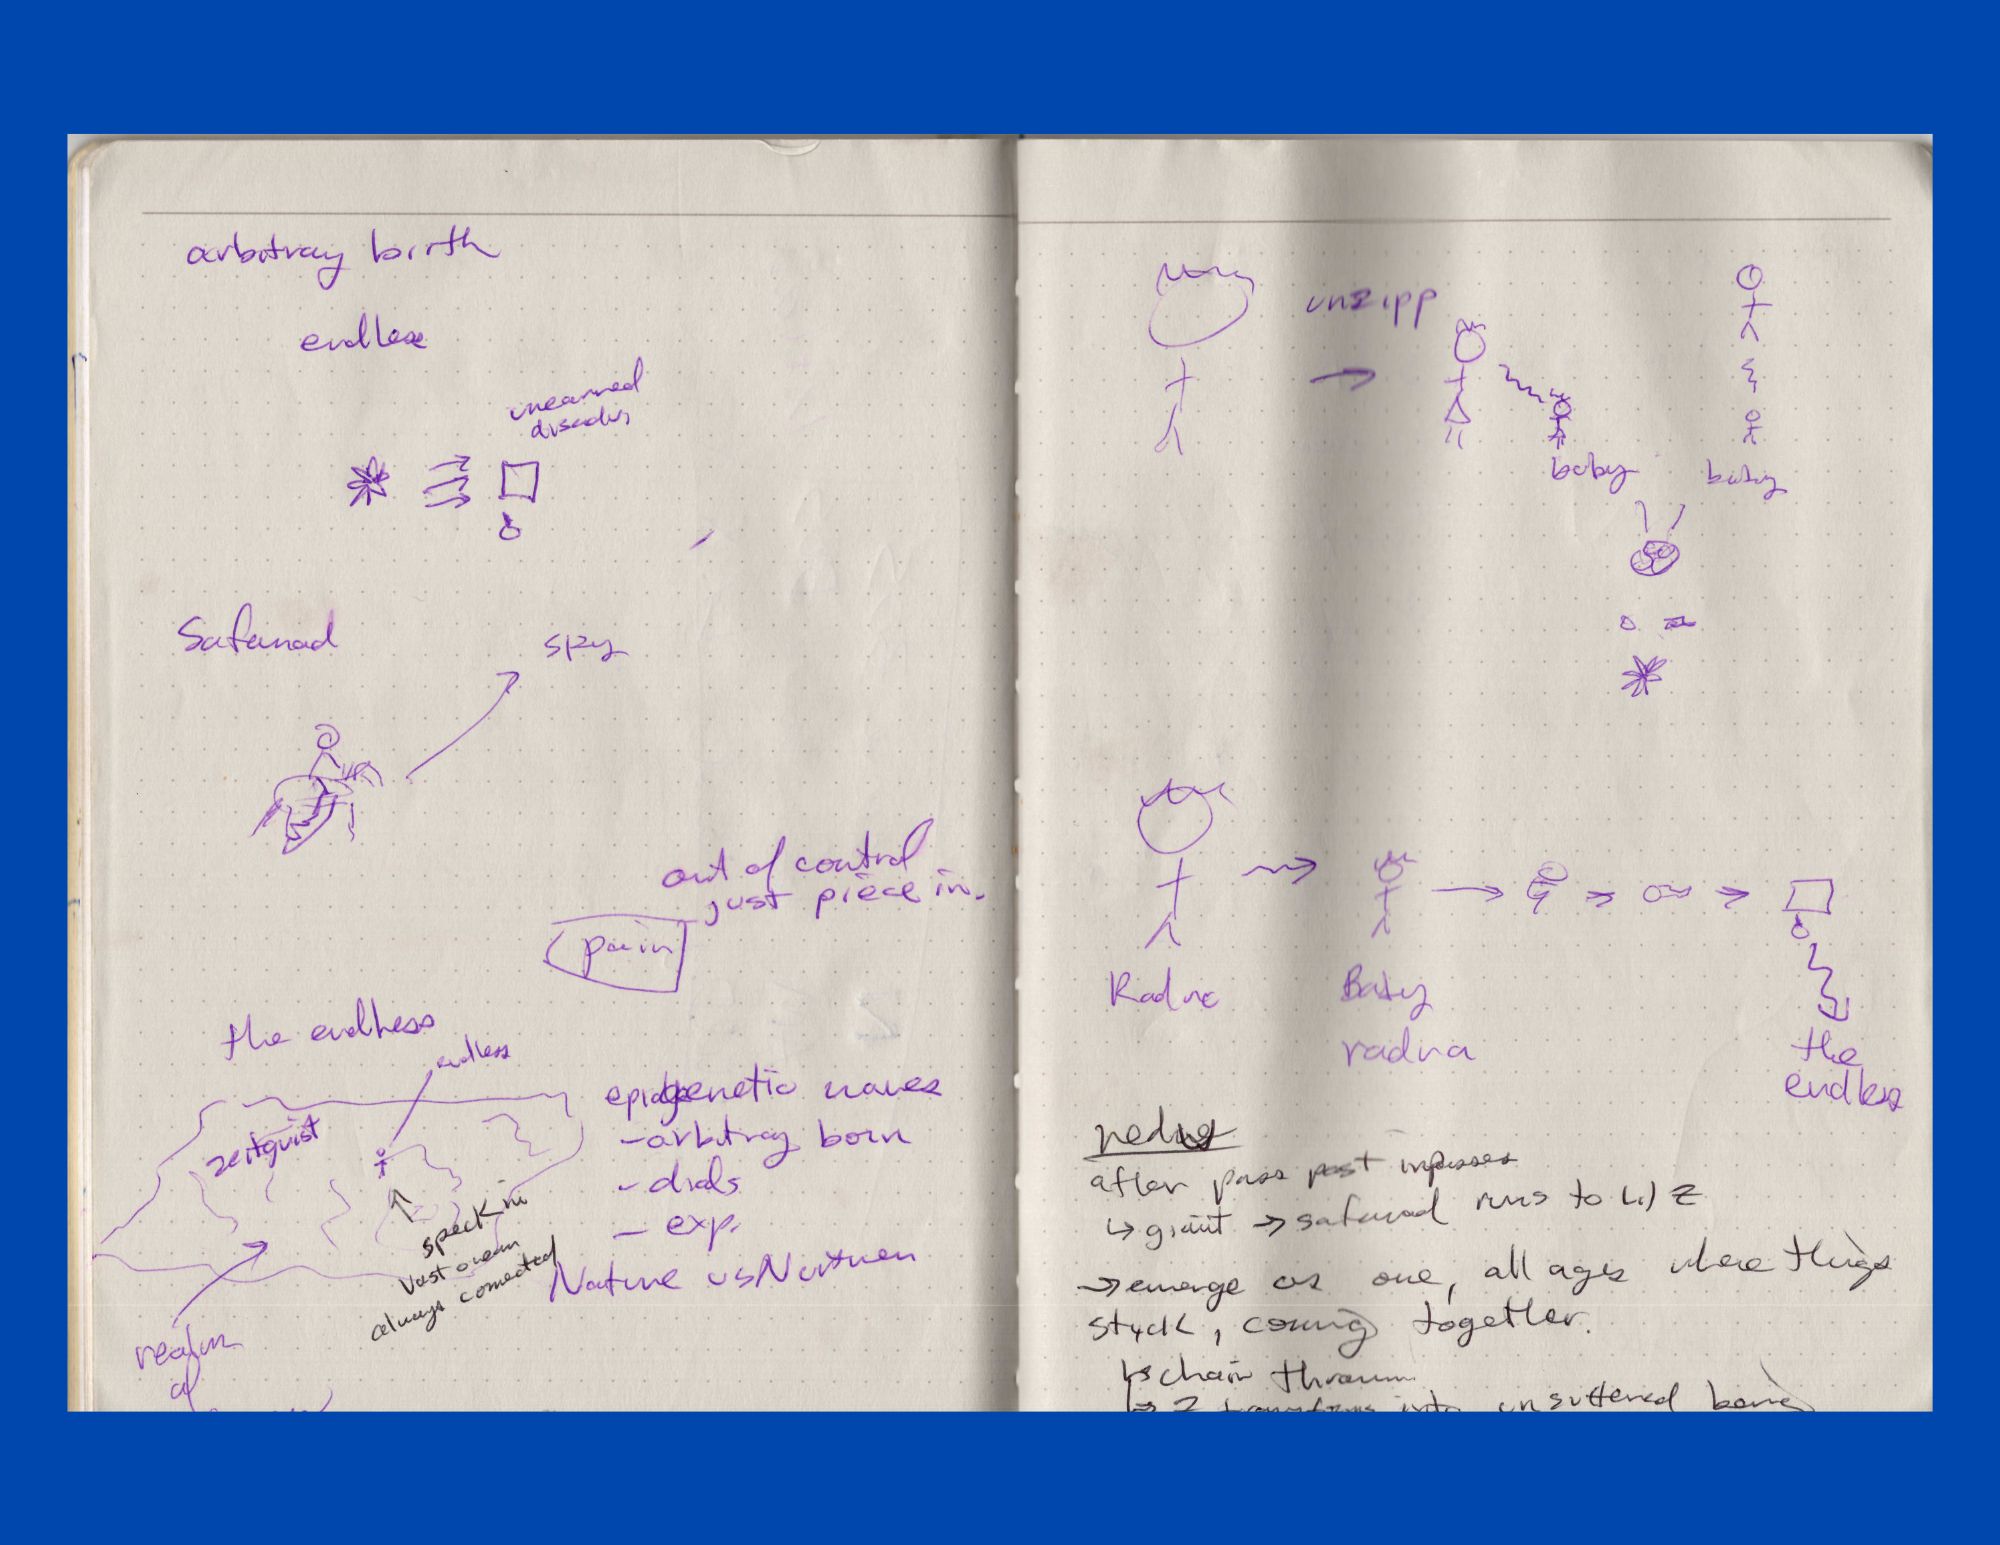 arbitray birth
endless
unearned
Safanad
spy
out of control
just piece in.
pain
the endless
endless
zeitguist
speck in
vast ocean
always connected
realm
of
epigenetic waves
- arbitray born
- dials
- exp.
Nature vs Nurturen
unzipp
baby
baby
Radna
Baby
radna
the
endless
after pass past impasses
↳ giant → safanad runs to w/ Z
→ emerge as one, all ages where things
stuck, coming together.
↳ chain
↳ Z transforms into being